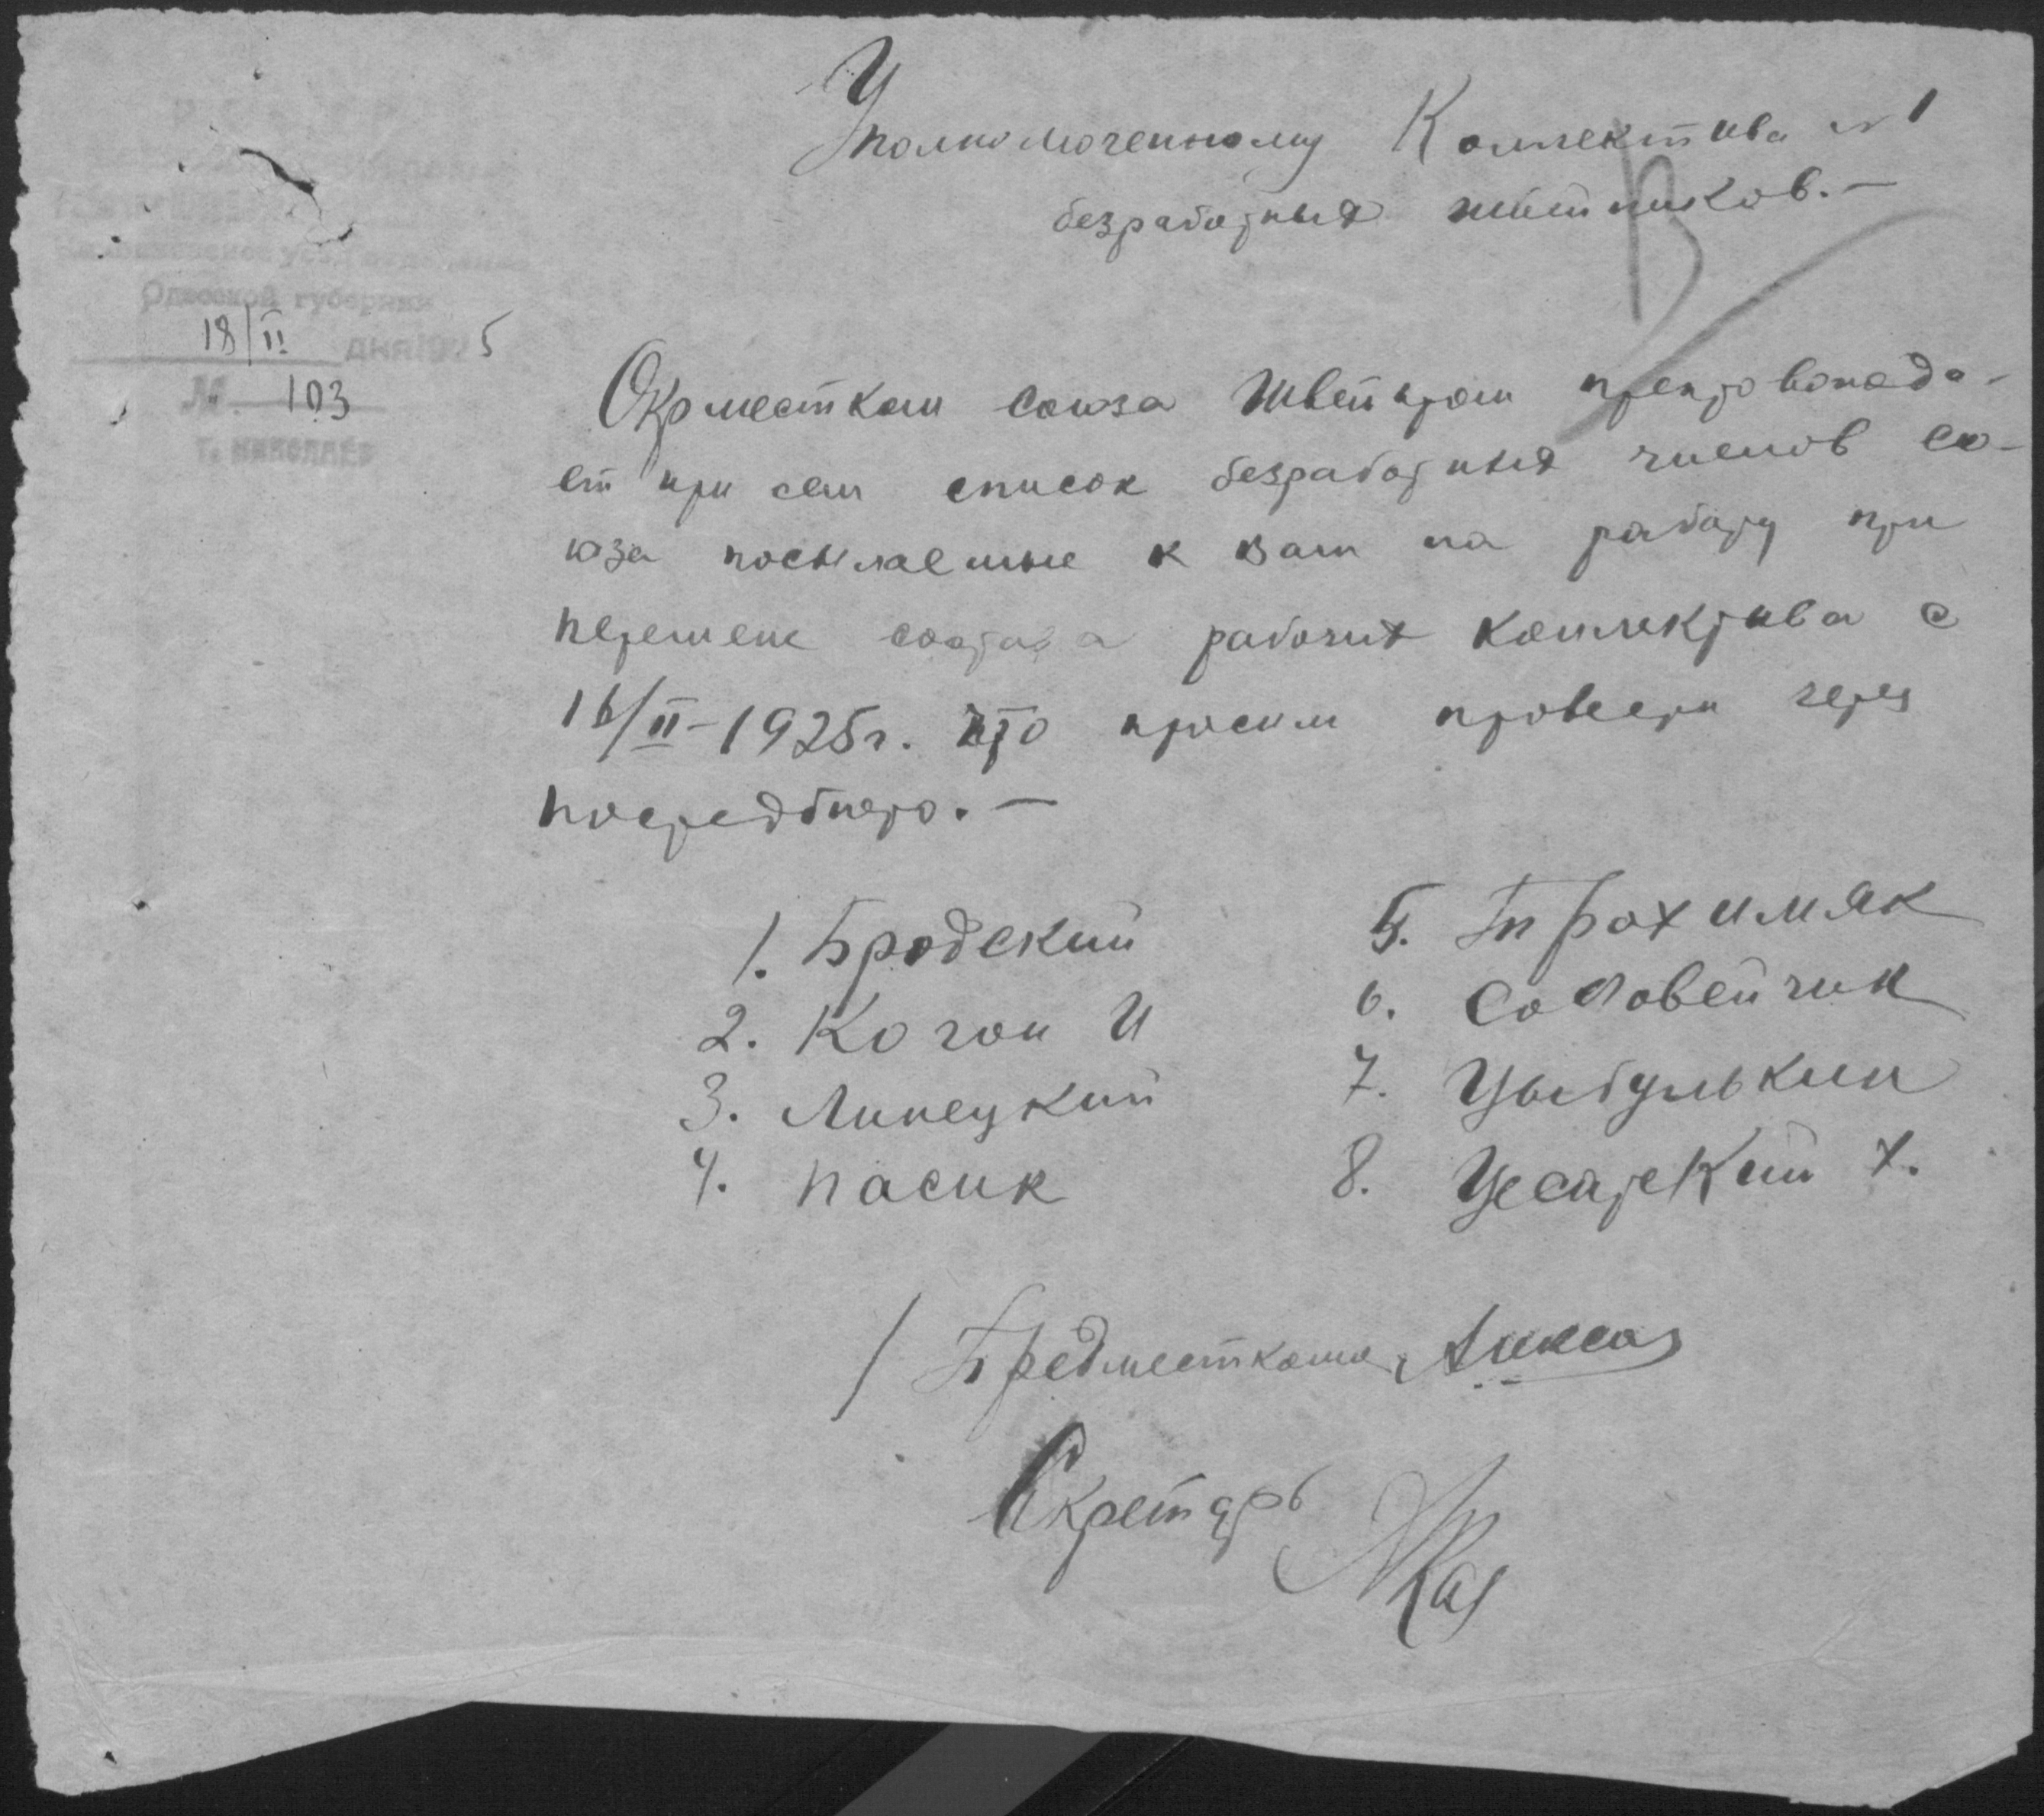 Уполномоченному Коллектива № 1
безработных швейников. —
Одесской губернии
18/II дня 1925
№ 103
г. НИКОЛАЕВ
Окрместком союза Швейпром препровожда-
ет при сем список безработных членов со-
юза посылаемые к вам на работу при
перемене состава рабочих коллектива с
16/II-1925г. что просим провести через
посредбюро. —
1. Бродский
2. Коган И
3. Липецкий
4. Пасик
5. Трохимяк
6. Соловейчик
7. Цыбулькин
8. Цесарский Х.
/ Предместкома
Секретарь